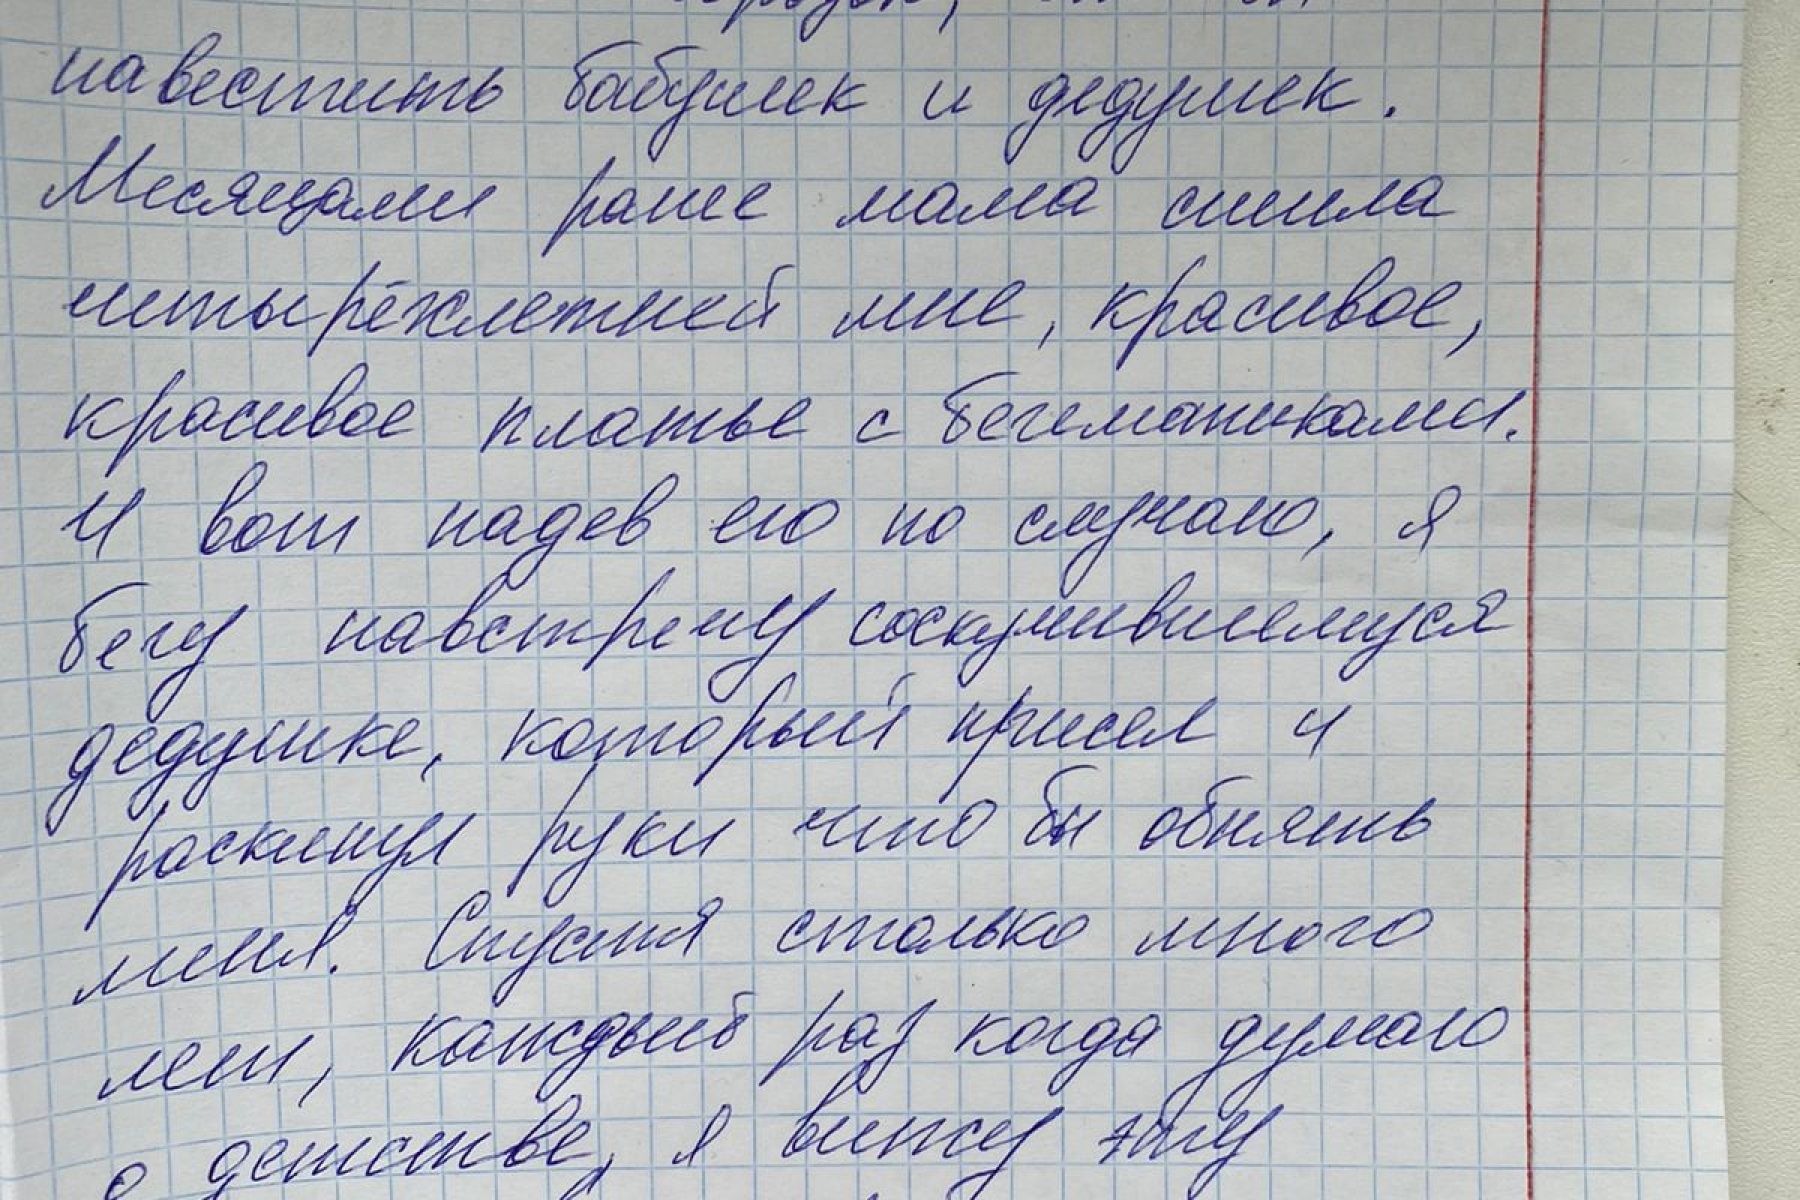 навестить бабушек и дедушек.
Месяцами ранее мама сшила
четырёхлетней мне, красивое,
красивое платье с бегемотиками.
И вот надев его по случаю, я
бегу навстречу соскучившемуся
дедушке, который присел и
раскинул руки что бы обнять
меня. Спустя столько много
лет, каждый раз когда думаю
о детстве, я вижу эту